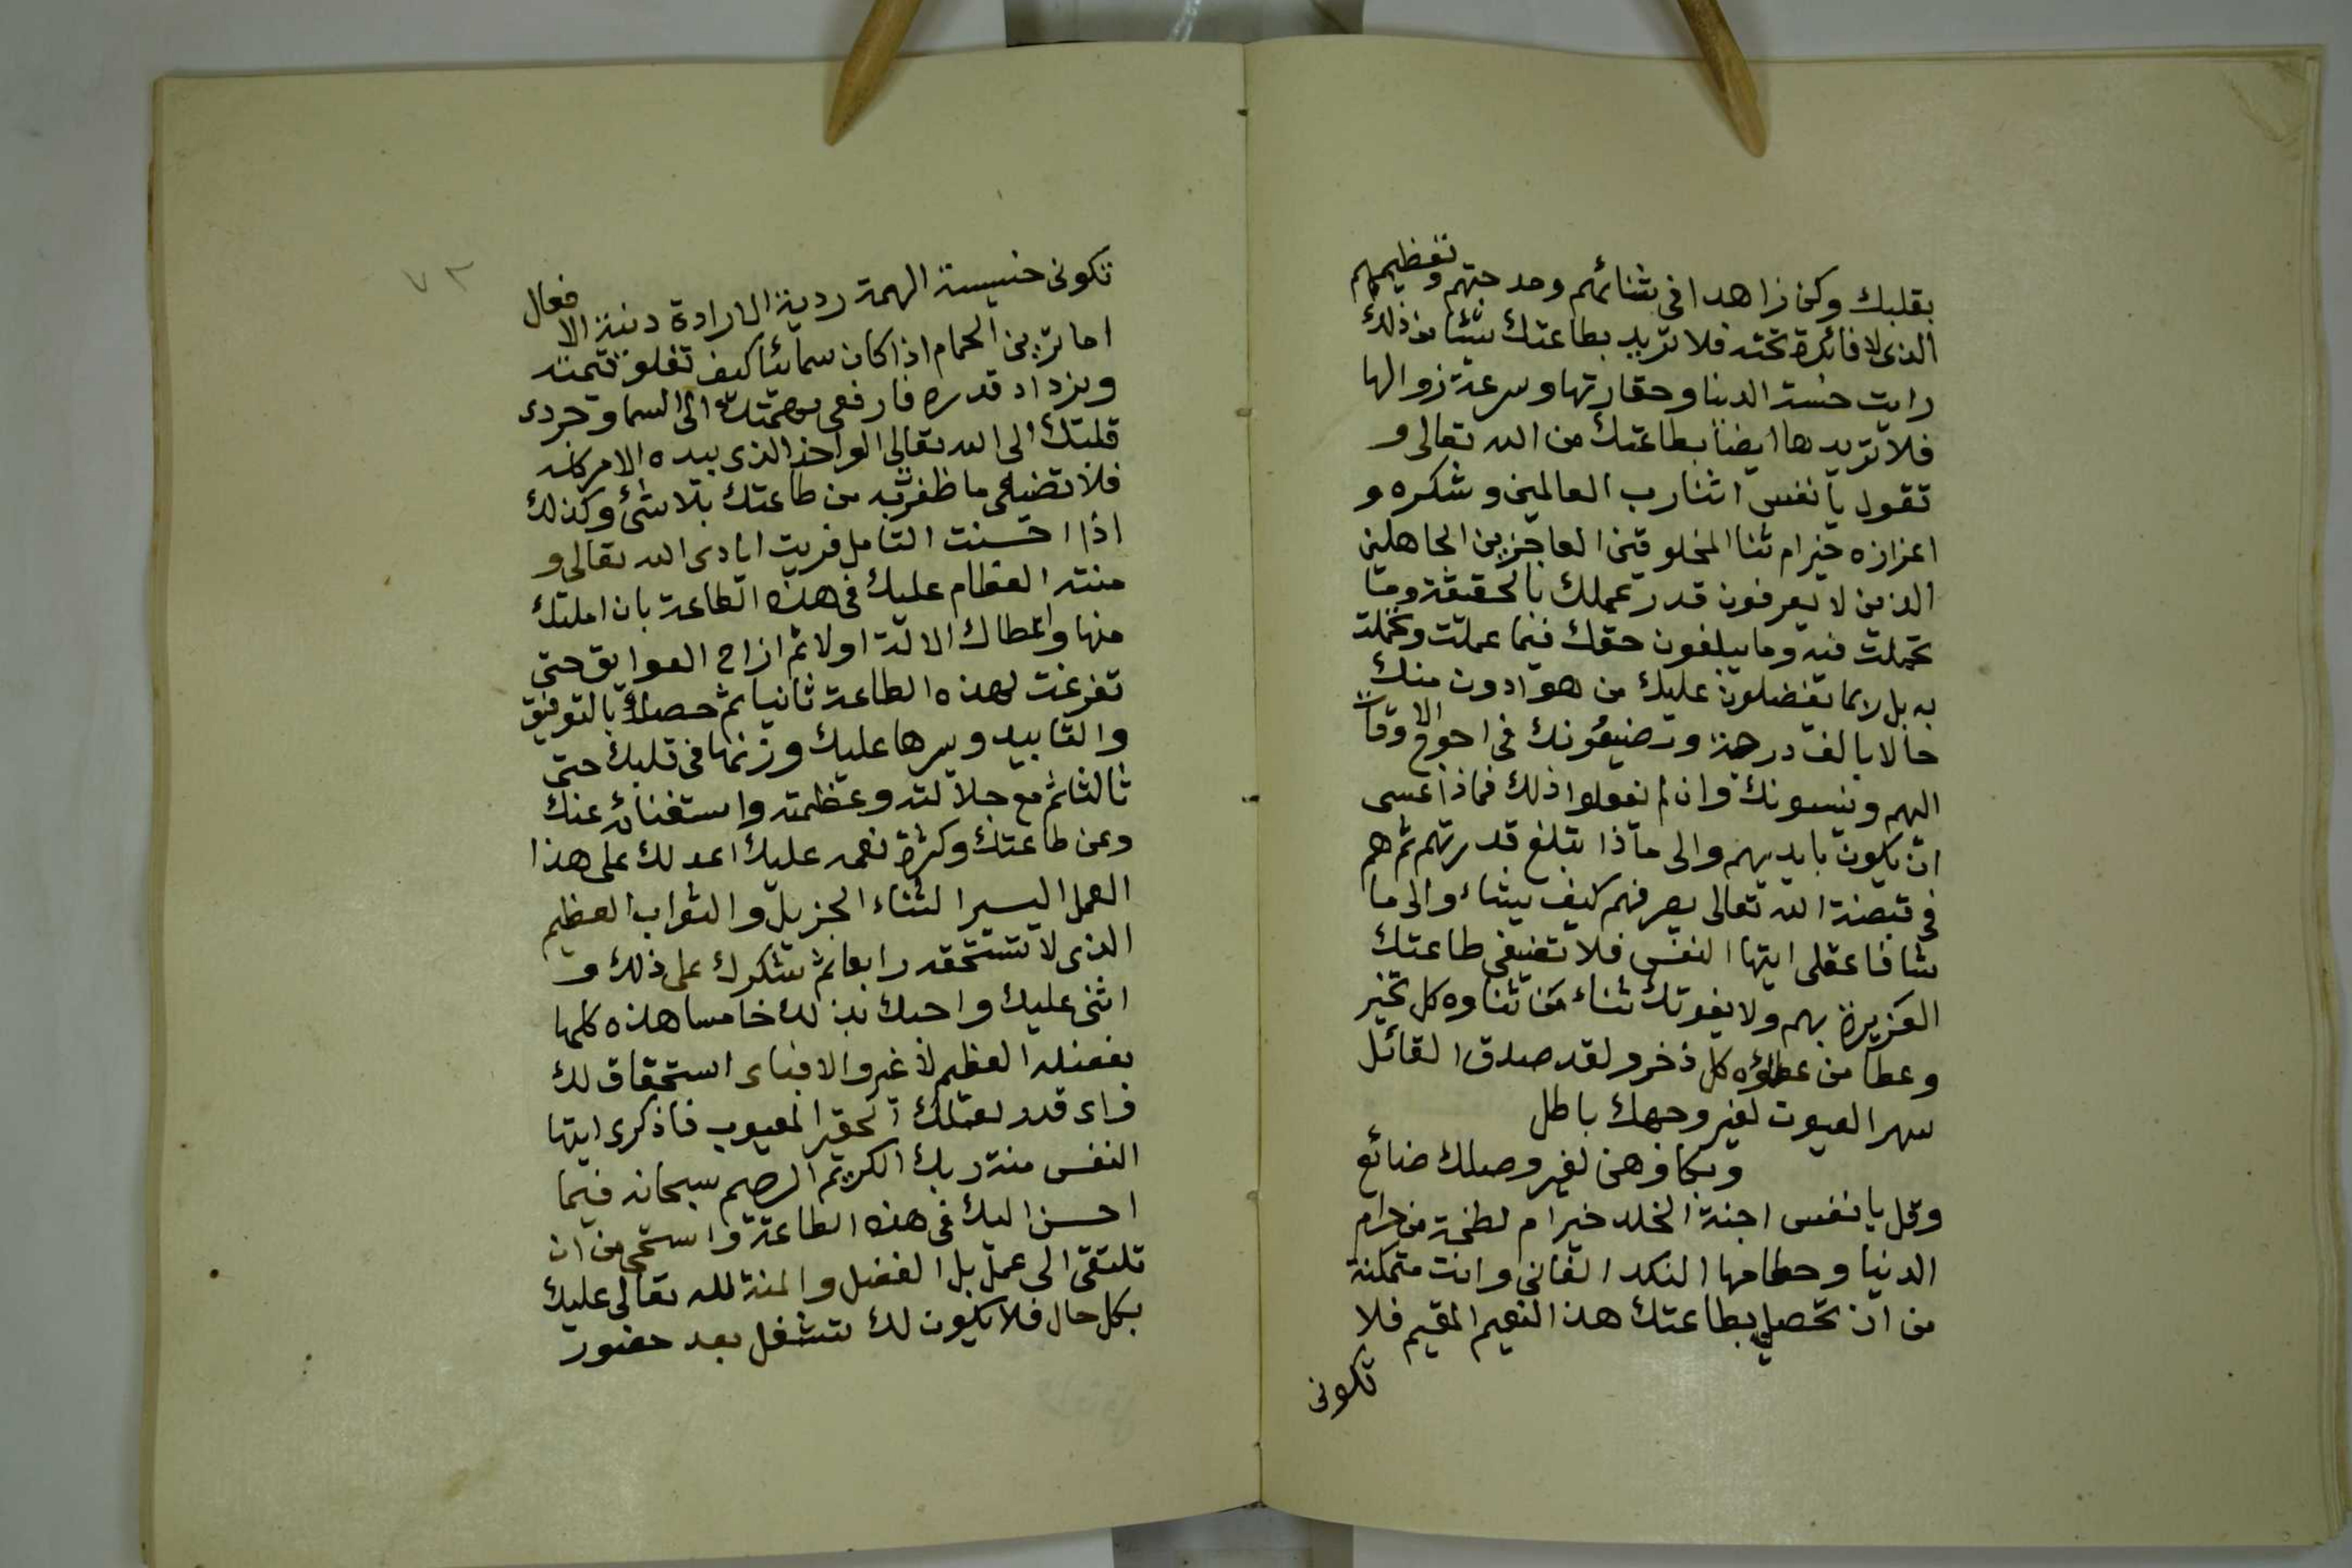 بقلبك وكن زاهدا فى ثنائهم ومدحتهم وتعظيمهم
الذى لا فائدة تحته فلا تريد بطاعتك شيئا من ذلك
رايت خسة الدنيا وحقارتها وسرعة زوالها
فلا تريدها ايضا بطاعتك من الله تعالى و
تقول يا نفس اثنا رب العالمين وشكره و
اعزازه خير ام ثنا المخلوقين العاجزين الجاهلين
الذين لا يعرفون قدر عملك بالحقيقة وما
تحملت فيه وما يبلغون حقك فيما عملت وتحملت
به بل ربما يفضلون عليك من هو ادون منك
حالا بالف درجة ويضيعونك فى احوج الاوقات
اليهم وينسونك وان لم يفعلوا ذلك فماذا عسى
ان يكون بايديهم والى ماذا تبلغ قدرتهم ثم هم
فى قبضة الله تعالى يصرفهم كيف يشاء والى ما
شا فاعقلى ايتها النفس فلا تضيعى طاعتك
العزيزة بهم ولا يفوتك ثناء من ثناوه كل خير
وعطا من عطاؤه كل ذخر ولقد صدق القائل
سهر العيون لغير وجهك باطل
وبكاوهن لغير وصلك ضائع
وقل يا نفس اجنة الخلد خير ام لطخة من حرام
الدنيا وحطامها النكد الفانى وانت متمكنة
من ان تحصلي بطاعتك هذا النعيم المقيم فلا
تكونى
٧٣
تكونى خسيسة الهمة ردية الارادة دنية الافعال
اما ترين الحمام اذا كان سمائيا كيف تغلو قيمته
ويزداد قدره فارفعى همتك الى السما وجردى
قلبك الى الله تعالى الواحد الذى بيده الامر كله
فلا تضيعى ما ظفرت به من طاعتك بلا شئ وكذلك
اذا احسنت التامل فريت ايادى الله تعالى و
مننه العظام عليك فى هذه الطاعة بان املتك
منها واعطاك الالة اولا ثم ازاح العوايق حتى
تفرغت لهذه الطاعة ثانيا ثم خصك بالتوفيق
والتاييد ويسرها عليك وزينها فى قلبك حتى
ثالثا ثم مع جلالته وعظمته واستغنائه عنك
وعن طاعتك وكثرة نعمه عليك اعد لك على هذا
العمل اليسير الثناء الجزيل والثواب العظيم
الذى لا تستحقه رابعا ثم شكرك على ذلك و
اثنى عليك واحبك بذلك خامسا هذه كلها
بفضله العظيم لا غير والا فباى استحقاق لك
واى قدر لعملك الحقير المعيوب فاذكرى ايتها
النفس منة ربك الكريم الرحيم سبحانه فيما
احسن اليك فى هذه الطاعة واستحى من ان
تلتفتى الى عمل بل الفضل والمنة لله تعالى عليك
بكل حال فلا يكون لك تشغل بعد حضور